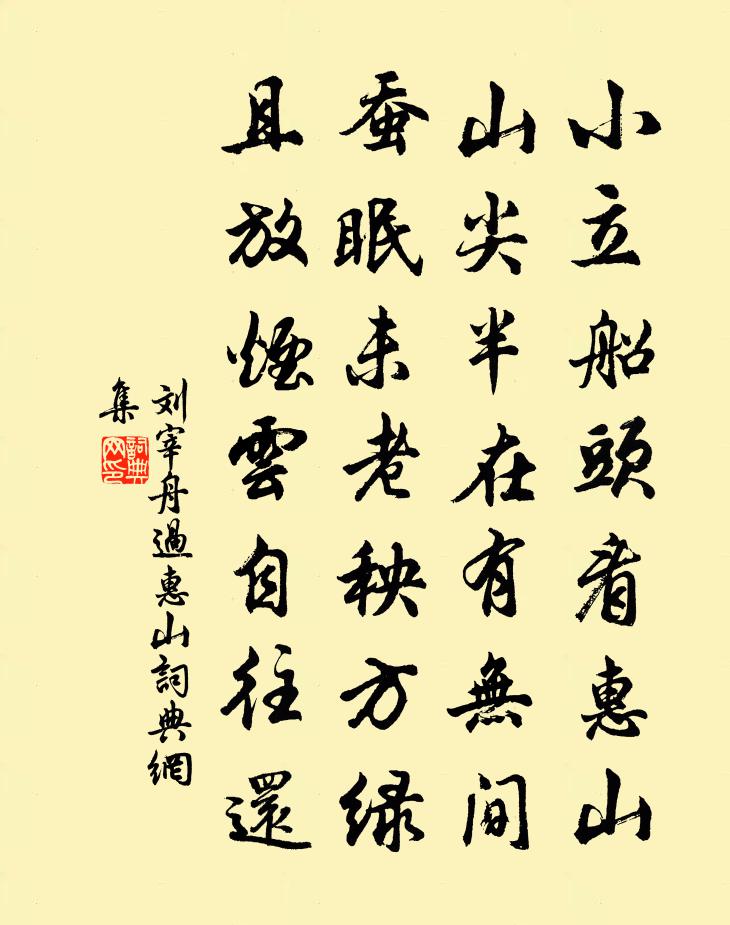 小立船頭看惠山
山尖半在有無間
蚕眠未老秧方绿
且放煙雲自往還
刘宰舟過惠山詞典網
集
詞典網印